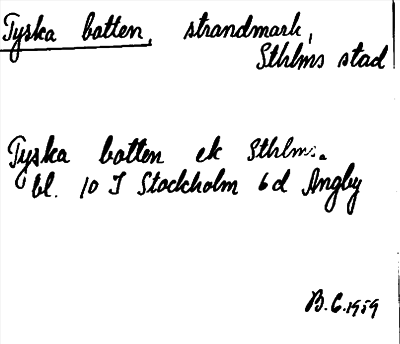 Tyska botten, strandmark,
Sthlms stad
Tyska botten ek Sthlm:.
bl. 10 I Stockholm 6d Ängby
B.G. 1959